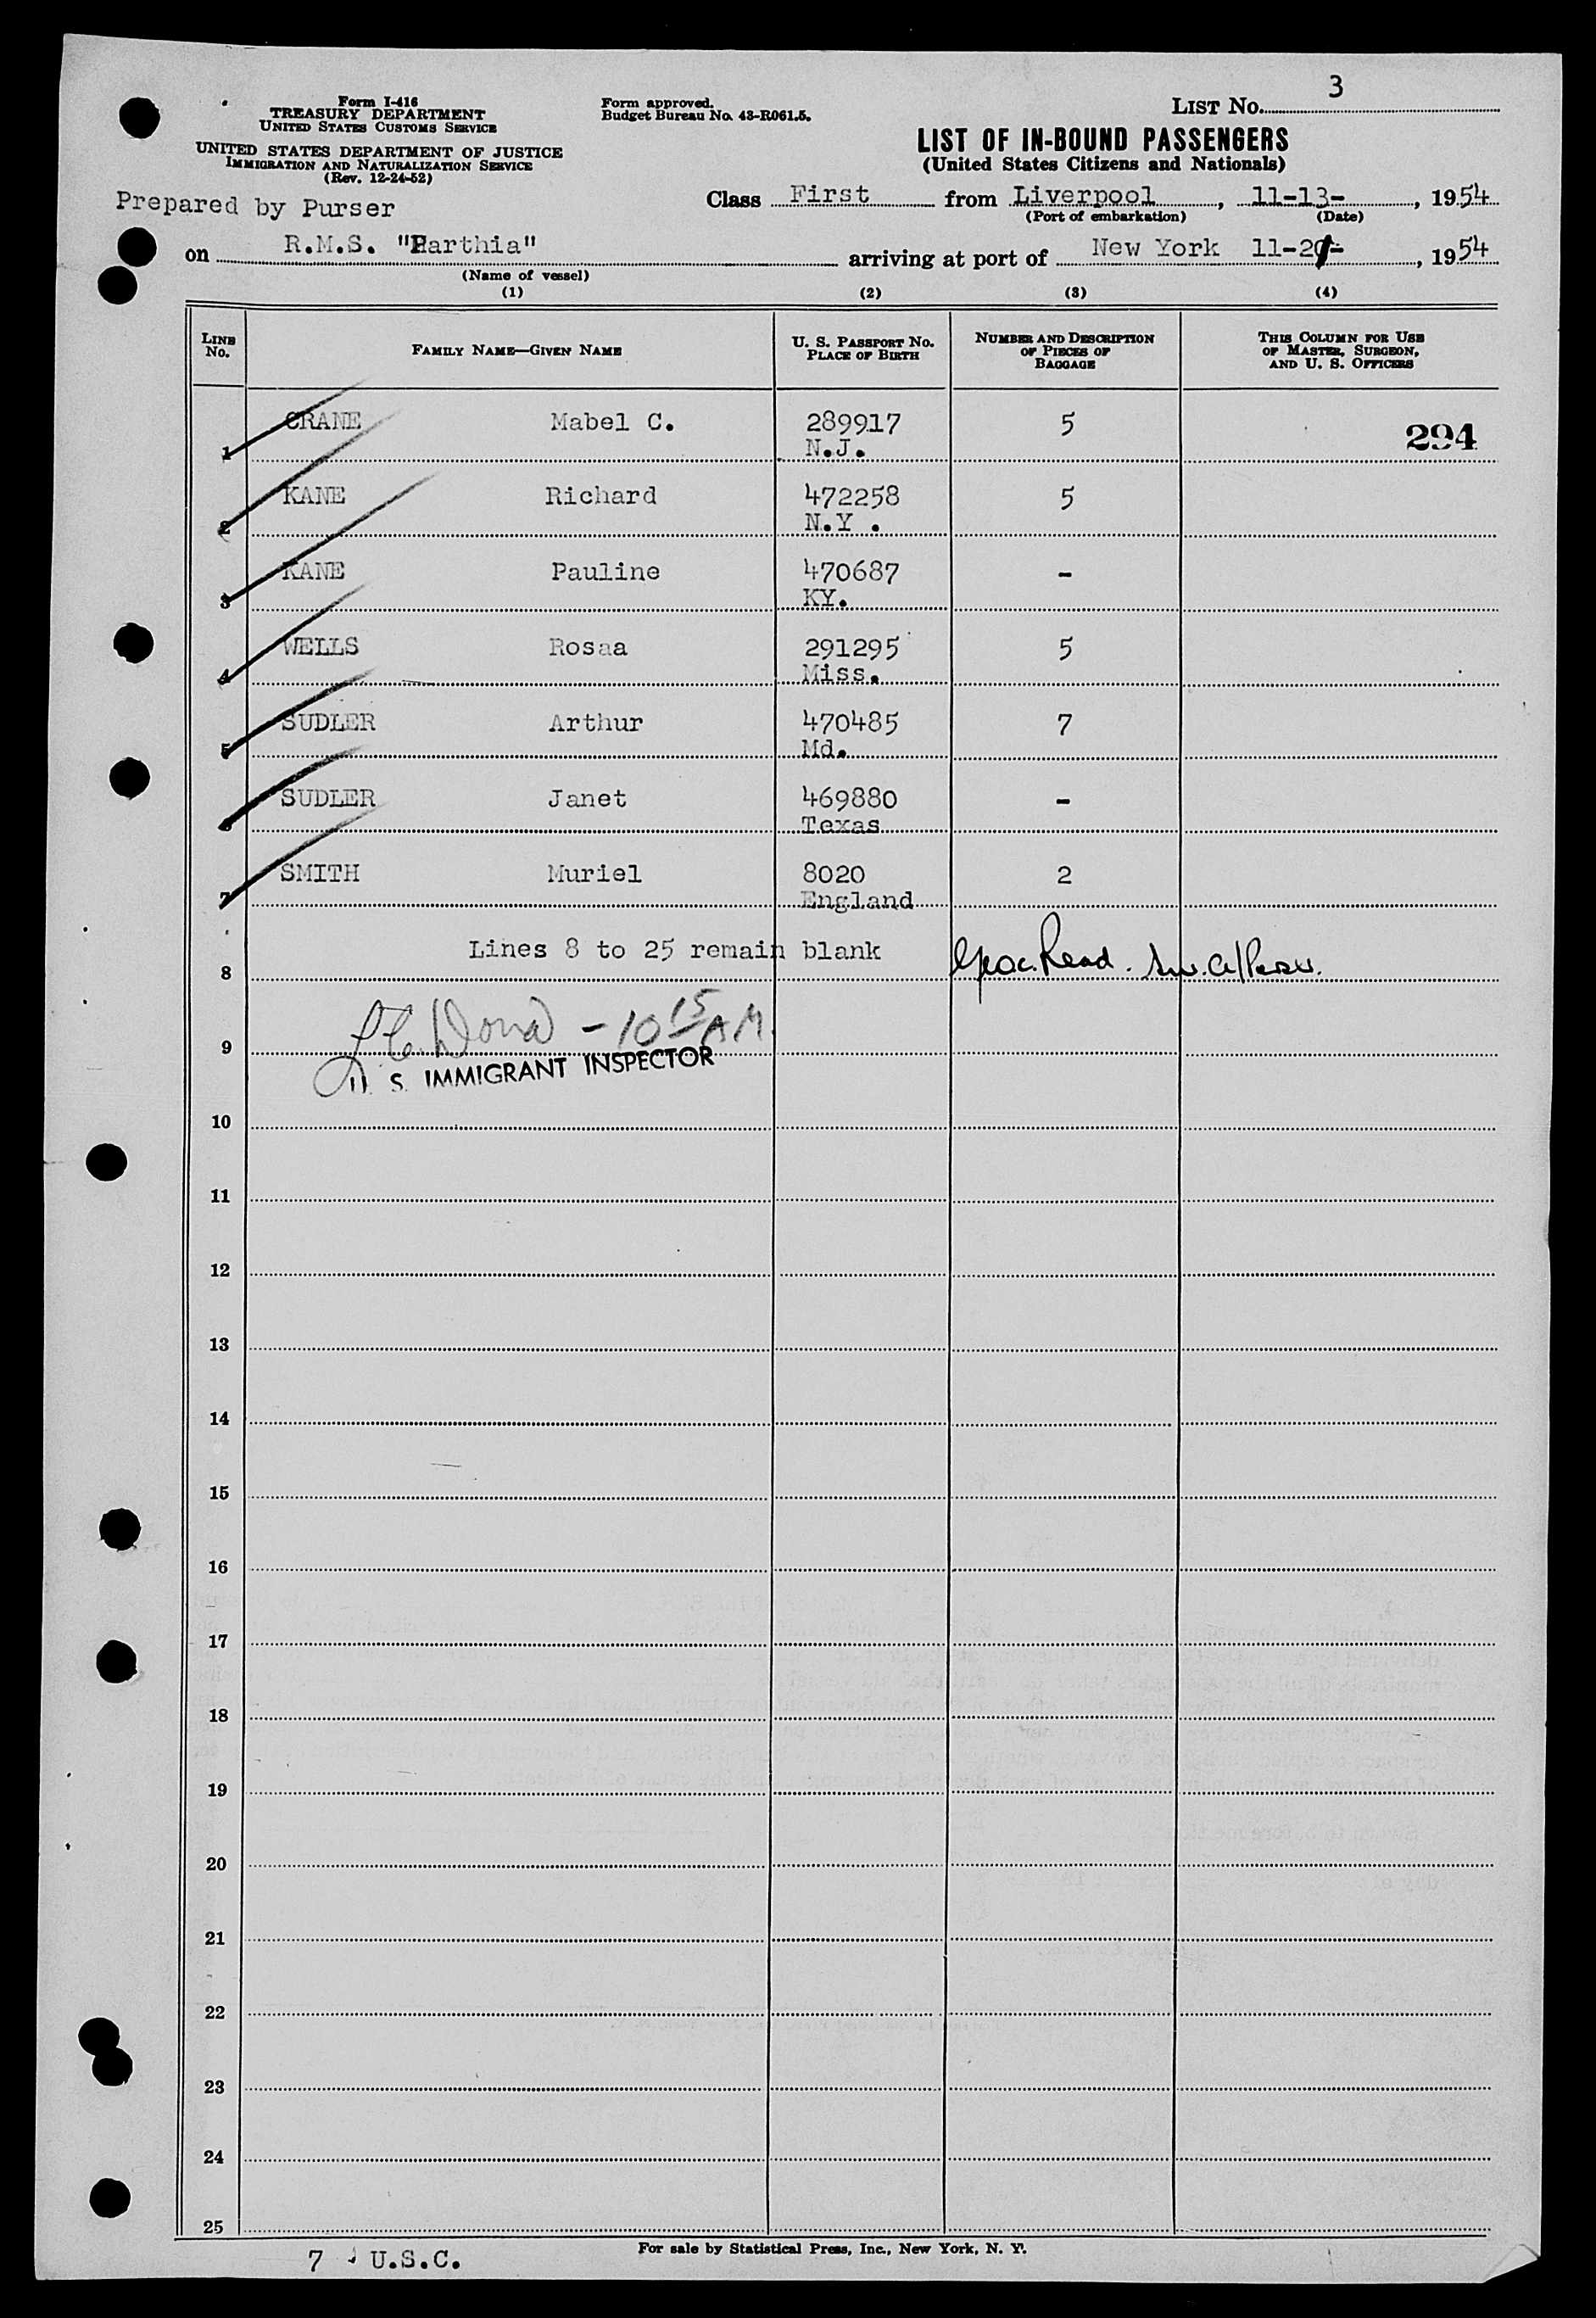 3
Form I-416
TREASURY DEPARTMENT
UNITED STATES CUSTOMS SERVICE
UNITED STATES DEPARTMENT OF JUSTICE
IMMIGRATION AND NATURALIZATION SERVICE
(Rev. 12-24-52)
Form approved.
Budget Bureau No. 43-R061.5.
LIST No.
LIST OF IN-BOUND PASSENGERS
(United States Citizens and Nationals)
Prepared by Purser
Class First from Liverpool, 11-13-, 1954
(Port of embarkation) (Date)
on R.M.S. "Parthia" arriving at port of New York 11-21-, 1954
(Name of vessel)
(1) (2) (3) (4)
LINE No. FAMILY NAME—GIVEN NAME U. S. PASSPORT No. PLACE OF BIRTH NUMBER AND DESCRIPTION OF PIECES OF BAGGAGE THIS COLUMN FOR USE OF MASTER, SURGEON, AND U. S. OFFICERS
1 CRANE Mabel C. 289917 5 294
N.J.
2 KANE Richard 472258 5
N.Y .
3 KANE Pauline 470687 -
KY.
4 WELLS Rosaa 291295 5
Miss.
5 SUDLER Arthur 470485 7
Md.
6 SUDLER Janet 469880 -
Texas
7 SMITH Muriel 8020 2
England
8 Lines 8 to 25 remain blank
9 - 10 15 AM
U. S. IMMIGRANT INSPECTOR
10
11
12
13
14
15
16
17
18
19
20
21
22
23
24
25
7 U.S.C.
For sale by Statistical Press, Inc., New York, N. Y.